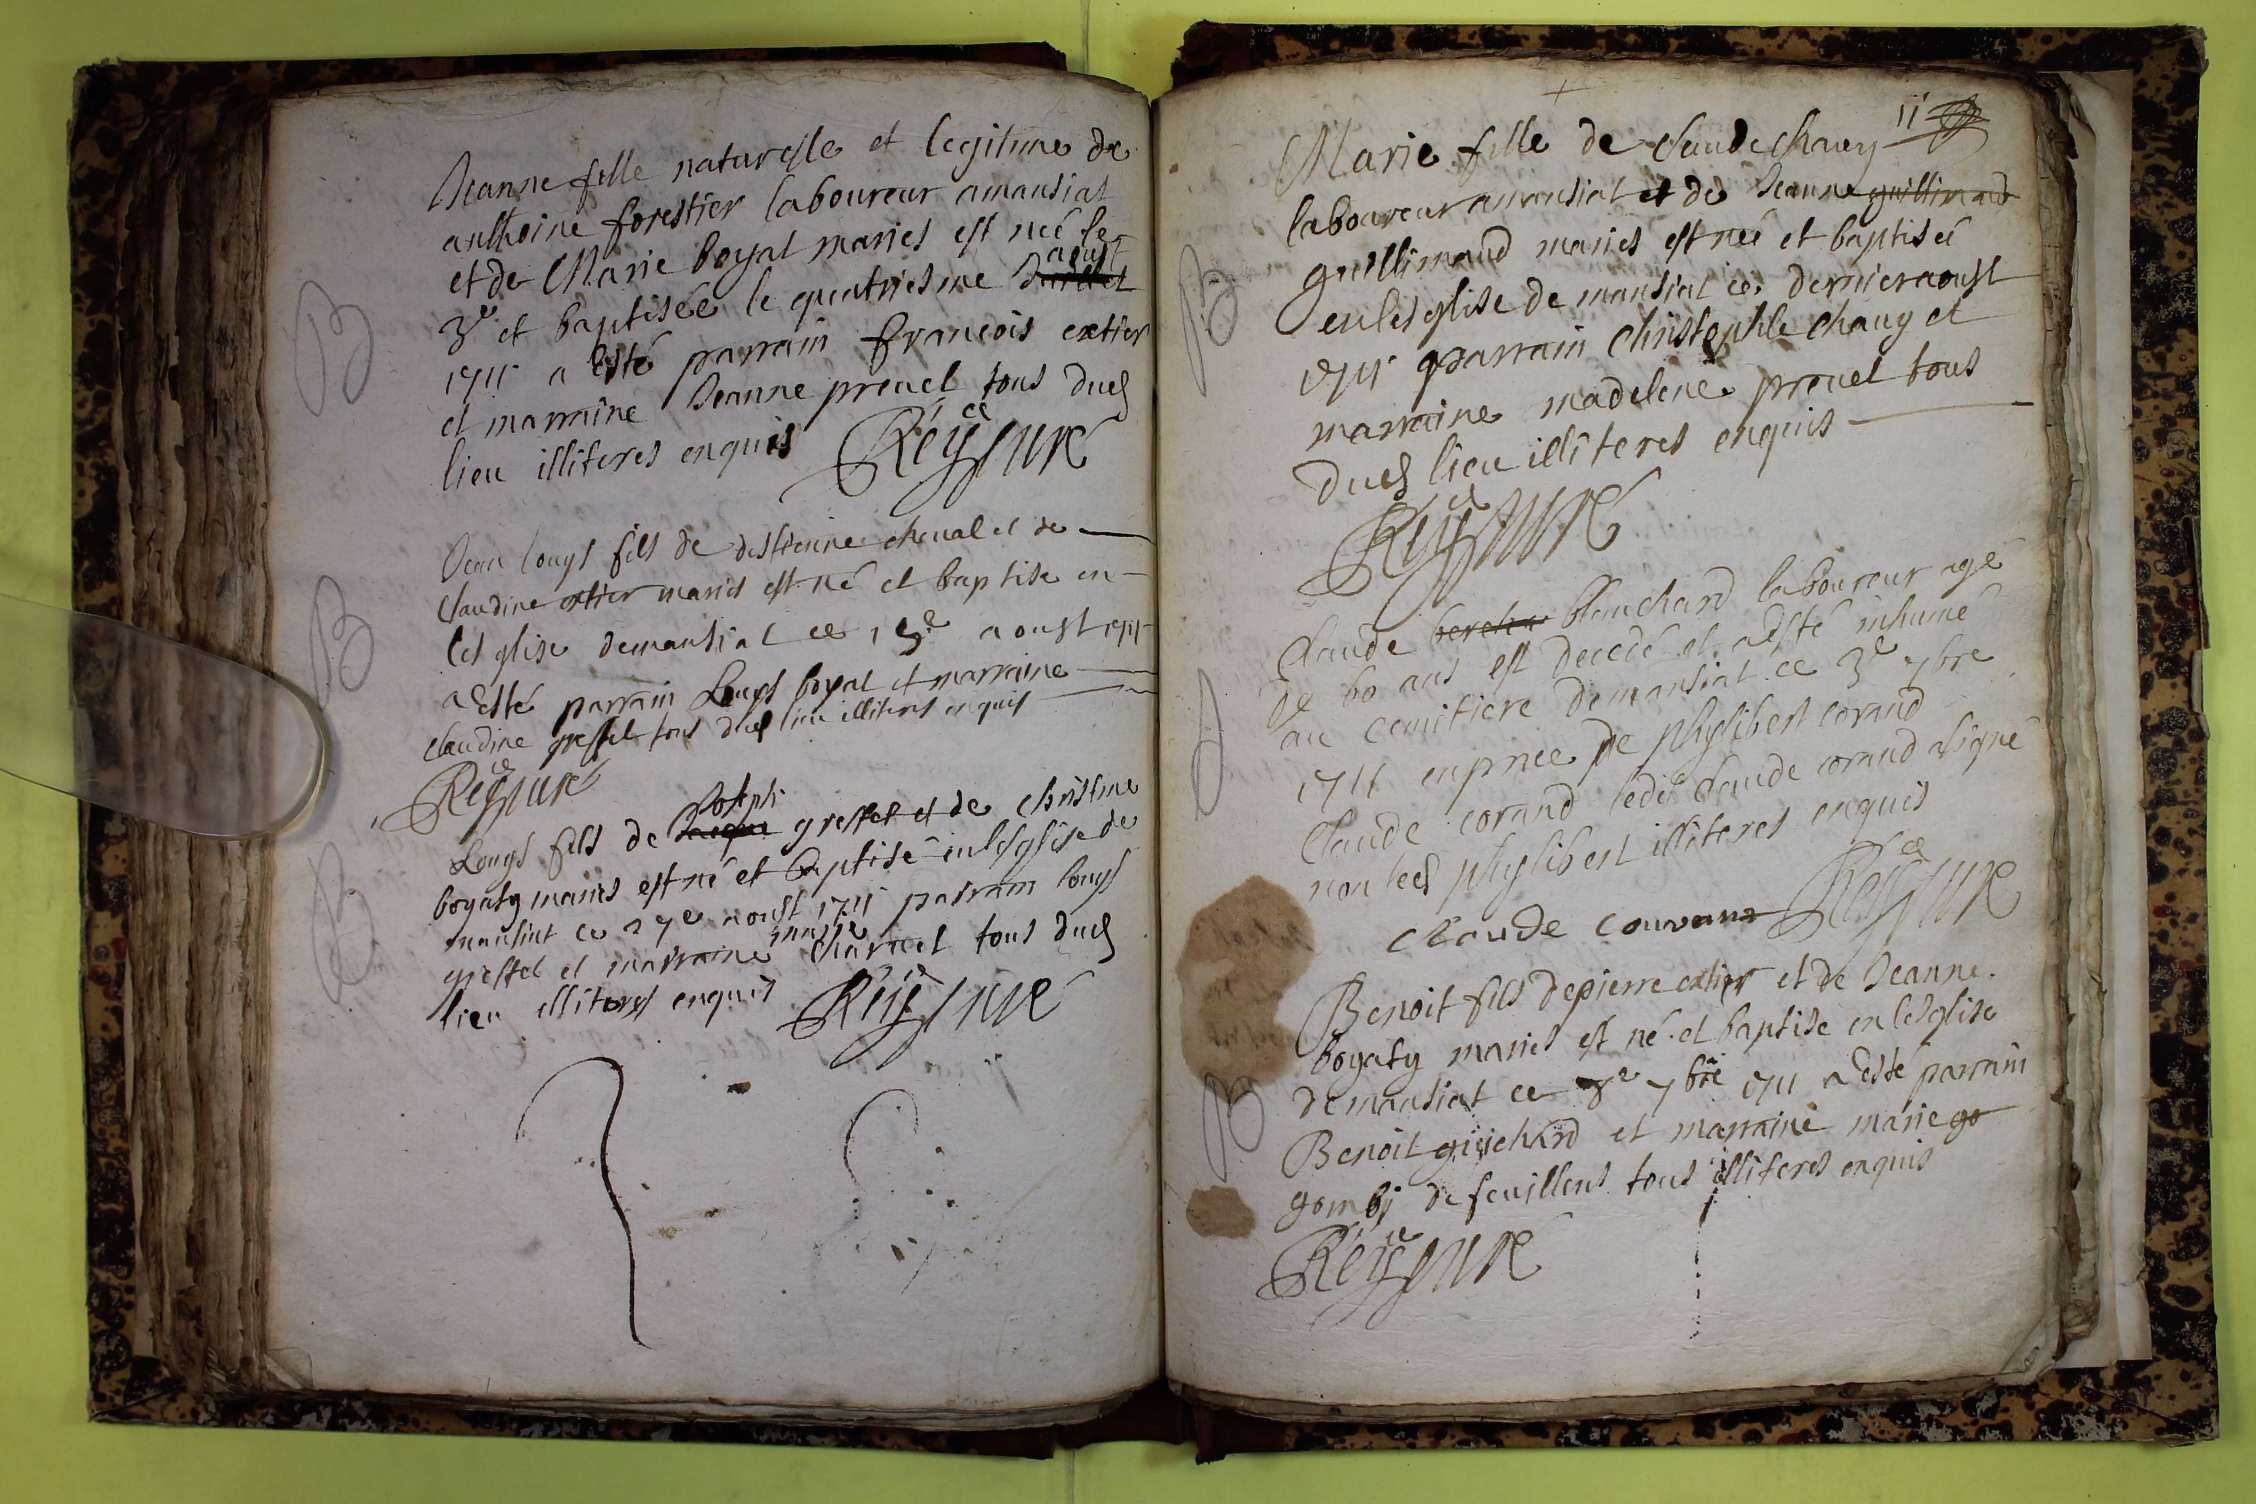 B
Jeanne fille naturelle et legitime de
anthoine forestier laboureur amansiat
et de Marie boyat mariés est neé le
aoust
3e et baptiseé le quatriesme Juillet
1711 a esté parrain francois extier
et marraine Jeanne preuel tous dud
lieu illiteres enquis Reÿ ce Jure
B
Jean louys fils de destienne cheual et de
claudine extier mariés est né et baptise en
lesglise demansiat ce aoust 1711
a esté parrain Louys boyat et marraine
claudine greffet tous dud lieu illiteres enquis
Reÿ ce Jure
B
Joseph
Louys fils de greffet et de christine
boyaty mariés est né et baptisé en lesglise de
mansiat ce 27e aoust 1711 parrain louys
marie
greffet et marraine charuel tous dud
lieu illiteres enquis Reÿ ce Jure
11
B
Marie fille de claude chauy
laboureur amansiat et de Jeanne guillimaud
guillimaud mariés est neé et baptiseé
en lesglise de mansiat ce dernier aoust
1711 parrain christophle chauy et
marraine madelene preuel tous
dud lieu illiteres enquis
Reÿ ce Jure
Claude blanchard laboureur agé
de 60 ans est decedé et a esté inhumé
au cemitiere demansiat ce 3e 7bre
1711 en pnce de phylibert corand
claude corand ledit claude corand signé
non led phylibert illiteres enquis
claude couran Reÿ ce Jure
B
Benoit fils depierre extier et de Jeanne
boyaty mariés est né et baptise en lesglise
demansiat ce 7bre 1711 a esté parrain
Benoit guichard et marraine marie go
gombj de feuillens tous illiteres enquis
Reÿ ce Jure